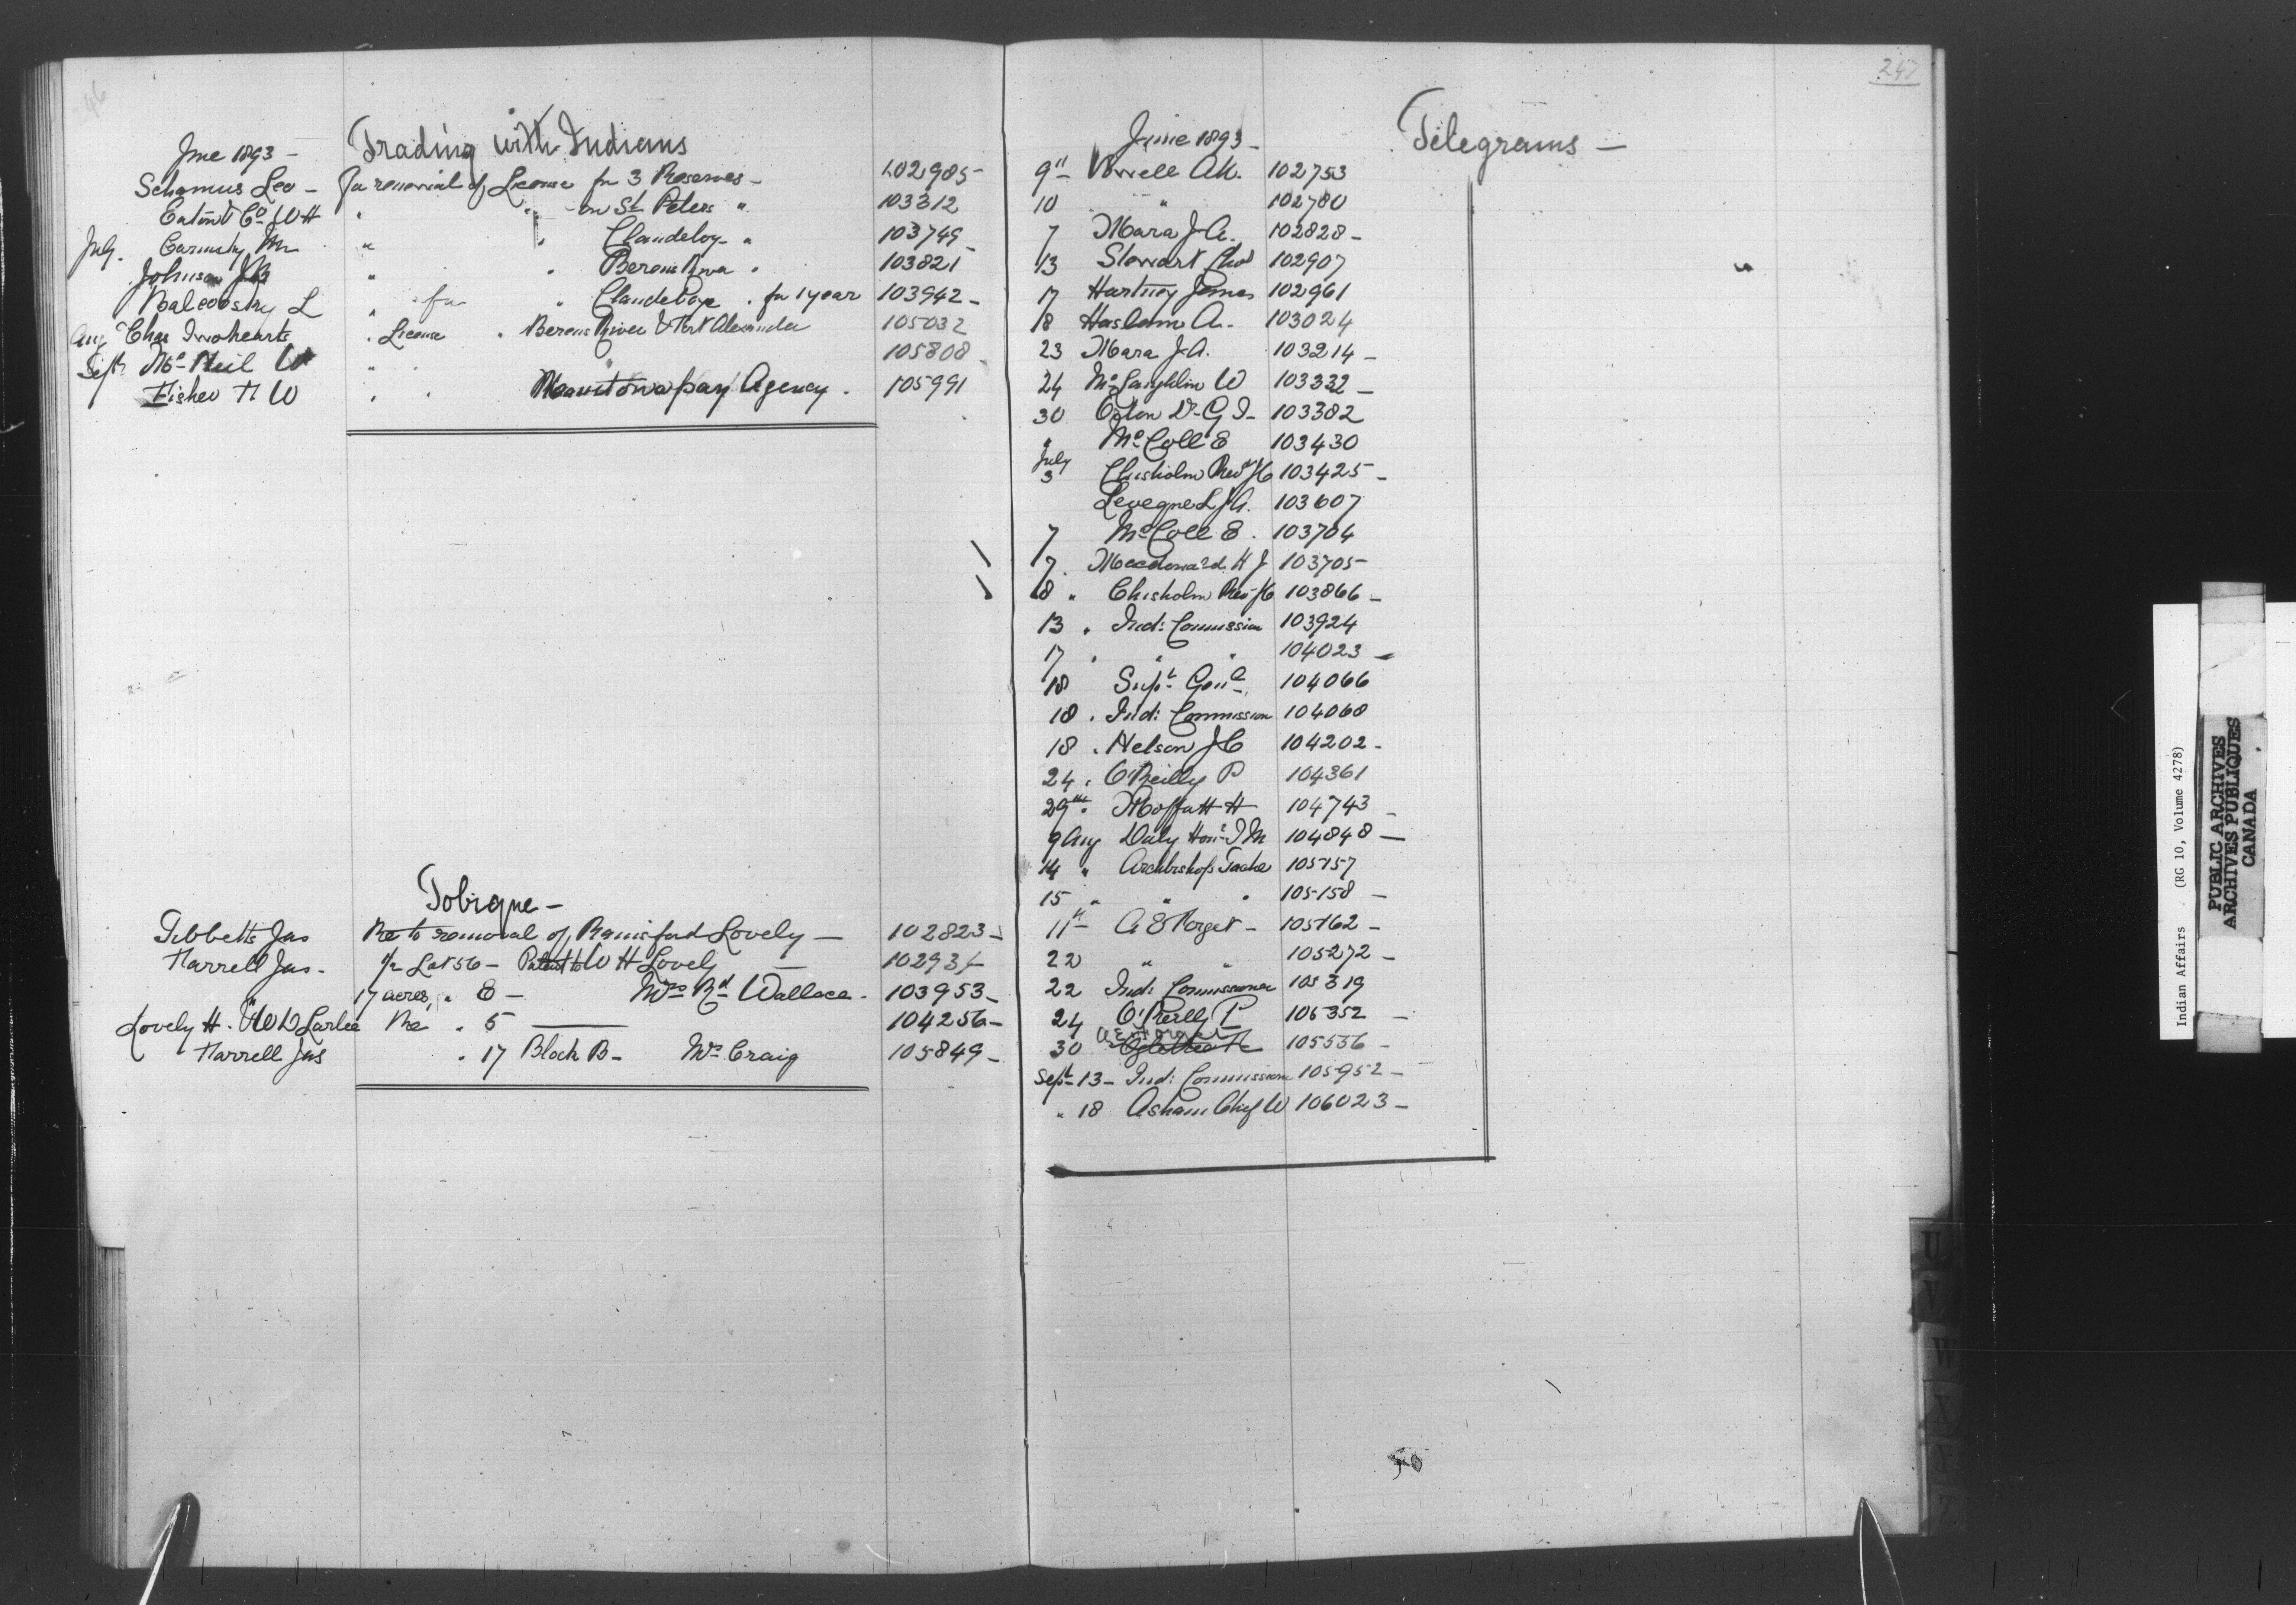 246
Trading with Indians
June 1893 -
Schamus Leo - for renewal of License for 3 Reserves - 102985 -
Eaton & Co W H " " - on St Peters " 103312
July. Carmsky M " " Clandeboy - " 103749 -
Johnson J B " " Berens River " 103821
Balcovsky L " for " Clandeboye " for 1 year 103942 -
Aug Chas Twohearts " License " Berens River & Fort Alexander 105032
Sept Mc Neil W " " " 105808 -
Fisher H W " " Manitowapan Agency . 105991
Tobique -
Tibbetts Jas Re to removal of Rainsford Lovely - 102823 -
Farrell Jas - 1/2 Lot 56 - Patent to W H Lovely - 10293/-
" 17 acres " 8 - Mrs Rd Wallace - 103953 -
Lovely H. & W D Larlee Re " 5 —— 104256 -
Farrell Jas " 17 Block B - Mrs Craig 105849 -
247
June 1893 - Telegrams -
9th Vowell A W. 102753
10 " 102780
7 Mara J A. 102828 -
13 Stewart Chas 102907
17 Hartney James 102961
18 Haslam A. 103024
23 Mara J. A. 103214 -
24 McLaughlin W 103332 -
30 Orton Dr G T - 103382
" McColl E 103430
July
3 Chisholm Revd J C 103425 -
Levegne L J A. 103607
7 McColl E . 103704
7. Macdonald H J 103705 -
8 " Chisholm Rev J C 103866 -
13 " Ind: Commission 103924
17 " " " 104023 -
18 Supt Genl 104066
18 . Ind: Commission 104068
18 . Nelson J C 104202 -
24 . O'Reilly P 104361
29th . Moffatt H 104743 -
9 Aug Daly Hon. T M 104848 -
14 " Archbishop Tache 105157
15 " " " 105158 -
11th A E Forget - 105162 -
22 " " 105272 -
22 Ind: Commissioner 105319
24 O'Reilly P 105352 -
A E Forget
30 105536 -
Sept - 13 - Ind: Commission 105952 -
" 18 Asham Chief W 106023 -
U
V
W
X
Y
Z
Indian Affairs . (RG 10, Volume 4278)
PUBLIC ARCHIVES
ARCHIVES PUBLIQUES
CANADA